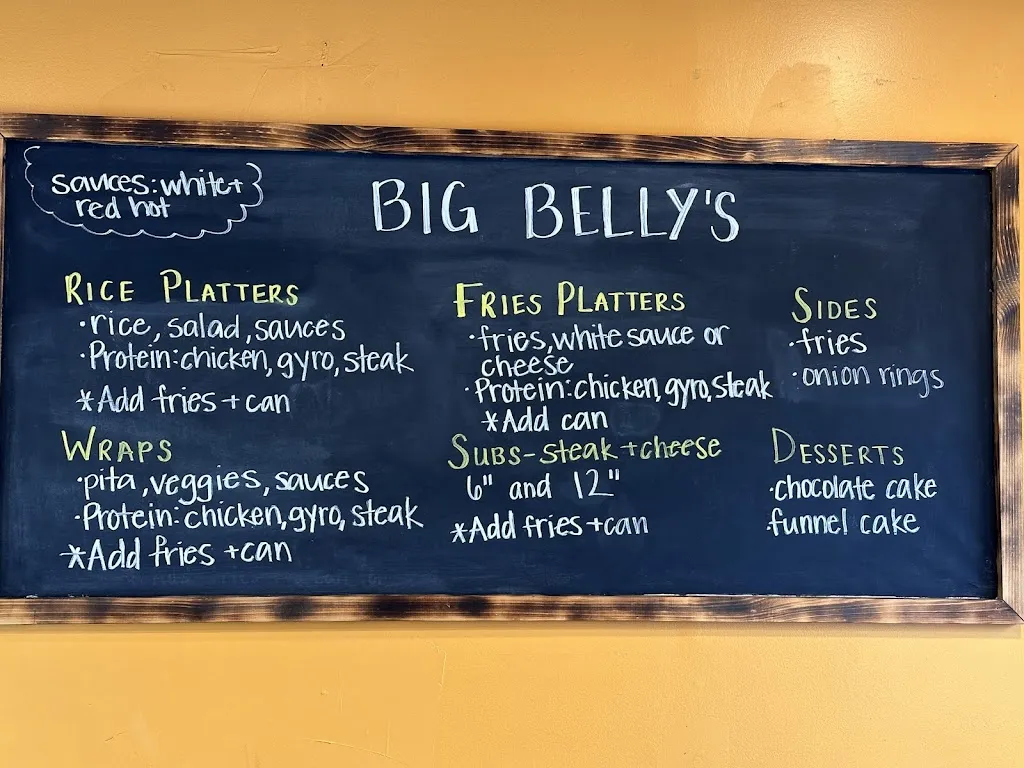 sauces: white +
red hot
BIG BELLY'S
RICE PLATTERS
·rice, salad, sauces
·Protein: chicken, gyro, steak
*Add fries + can
WRAPS
·pita, veggies, sauces
·Protein: chicken, gyro, steak
*Add fries + can
FRIES PLATTERS
·fries, white sauce or
cheese
·Protein: chicken, gyro, steak
*Add can
SUBS - steak + cheese
6" and 12"
*Add fries + can
SIDES
·fries
·onion rings
DESSERTS
·chocolate cake
·funnel cake